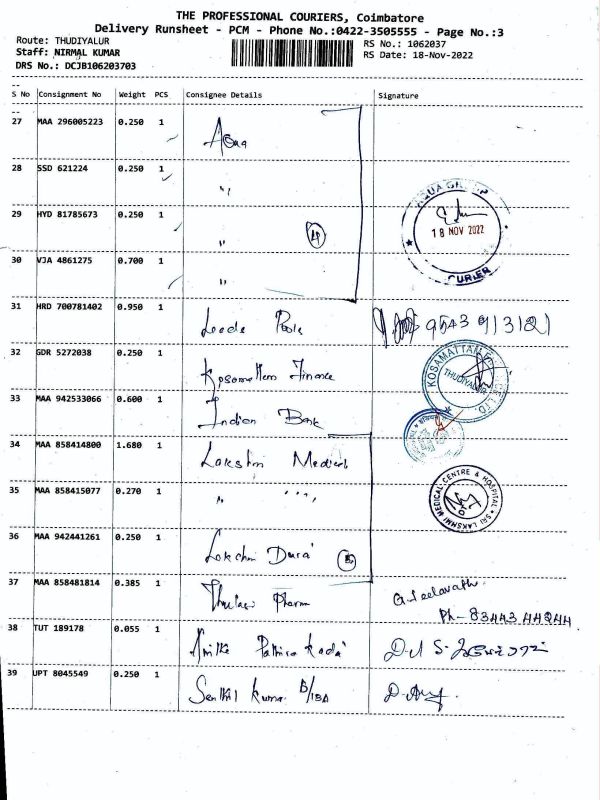 THE PROFESSIONAL COURIERS, Coimbatore
Delivery Runsheet - PCM - Phone No.:0422-3505555 - Page No.:3
Route: THUDIYALUR
RS No.: 1062037
Staff: NIRMAL KUMAR
RS Date: 18-Nov-2022
DRS No.: DCJB106203703
S No Consignment No Weight PCS Consignee Details Signature
27 MAA 296005223 0.250 1
28 SSD 621224 0.250 1 "
AQUA GROUP
29 HYD 81785673 0.250 1 "
18 NOV 2022
30 VJA 4861275 0.700 1 "
COURIER
31 HRD 700781402 0.950 1
32 GDR 5272038 0.250 1 Kosamattam Finance
KOSAMATTAM FINANCE LTD.
THUDIYALUR
33 MAA 942533066 0.600 1 Indian Bank
34 MAA 858414800 1.680 1 Lakshmi Medical
35 MAA 858415077 0.270 1 " "
SRI LAKSHMI MEDICAL CENTRE & HOSPITAL
36 MAA 942441261 0.250 1 Lakshmi
37 MAA 858481814 0.385 1 Pharm
Ph- 83443 44244
38 TUT 189178 0.055 1
39 UPT 8045549 0.250 1 Senthil Kumar